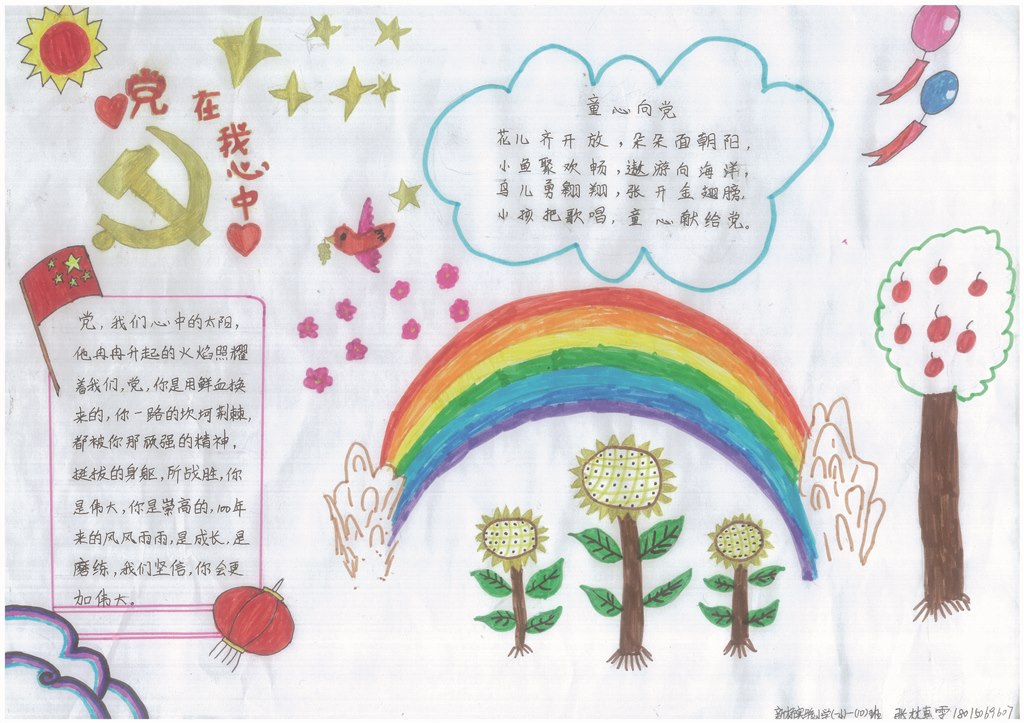 党
在
我
心
中
童心向党
花儿齐开放，朵朵面朝阳，
小鱼聚欢畅，遨游向海洋，
鸟儿勇翱翔，张开金翅膀，
小孩把歌唱，童心献给党。
党，我们心中的太阳，
他冉冉升起的火焰照耀
着我们，党，你是用鲜血换
来的，你一路的坎坷荆棘，
都被你那顽强的精神，
挺拔的身躯，所战胜，你
是伟大，你是崇高的，100年
来的风风雨雨，是成长，是
磨练，我们坚信，你会更
加伟大。